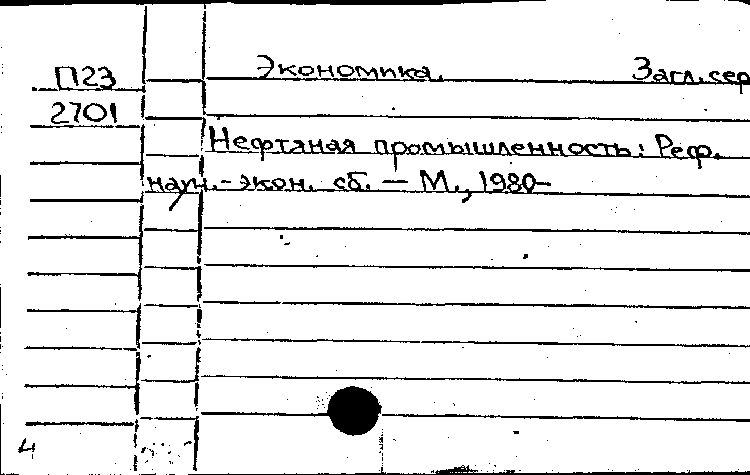 П23 Экономика. Загл. сер
2701
Нефтяная промышленность: Реф.
науч.-экон. сб. — М., 1980-
4